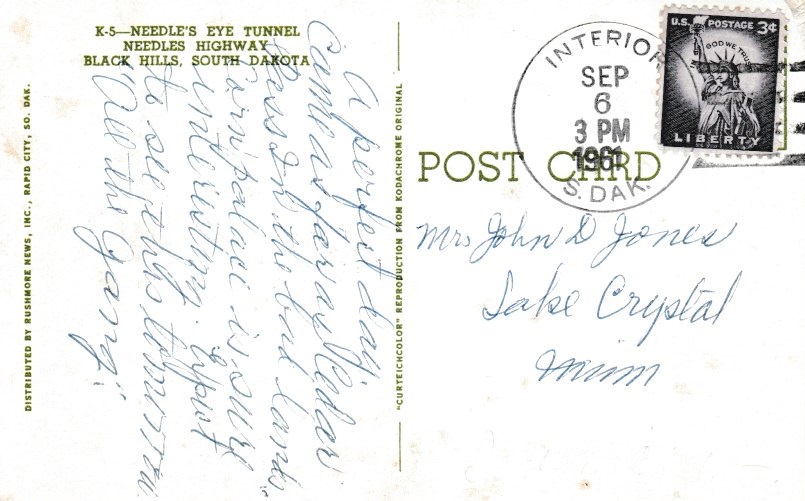 K-5—NEEDLE'S EYE TUNNEL
NEEDLES HIGHWAY
BLACK HILLS, SOUTH DAKOTA
A perfect day.
Came as far as Kedar
Pass in the bad lands
Corn palace is sure
interesting. Expect
to see the hills tomorrow.
"All the Gang".
DISTRIBUTED BY RUSHMORE NEWS, INC., RAPID CITY, SO. DAK.
"CURTEICHCOLOR" REPRODUCTION FROM KODACHROME ORIGINAL
POST CARD
INTERIOR
SEP
6
3 PM
1961
S. DAK.
U.S. POSTAGE 3¢
IN GOD WE TRUST
LIBERTY
Mrs John D Jones
Lake Crystal
Minn